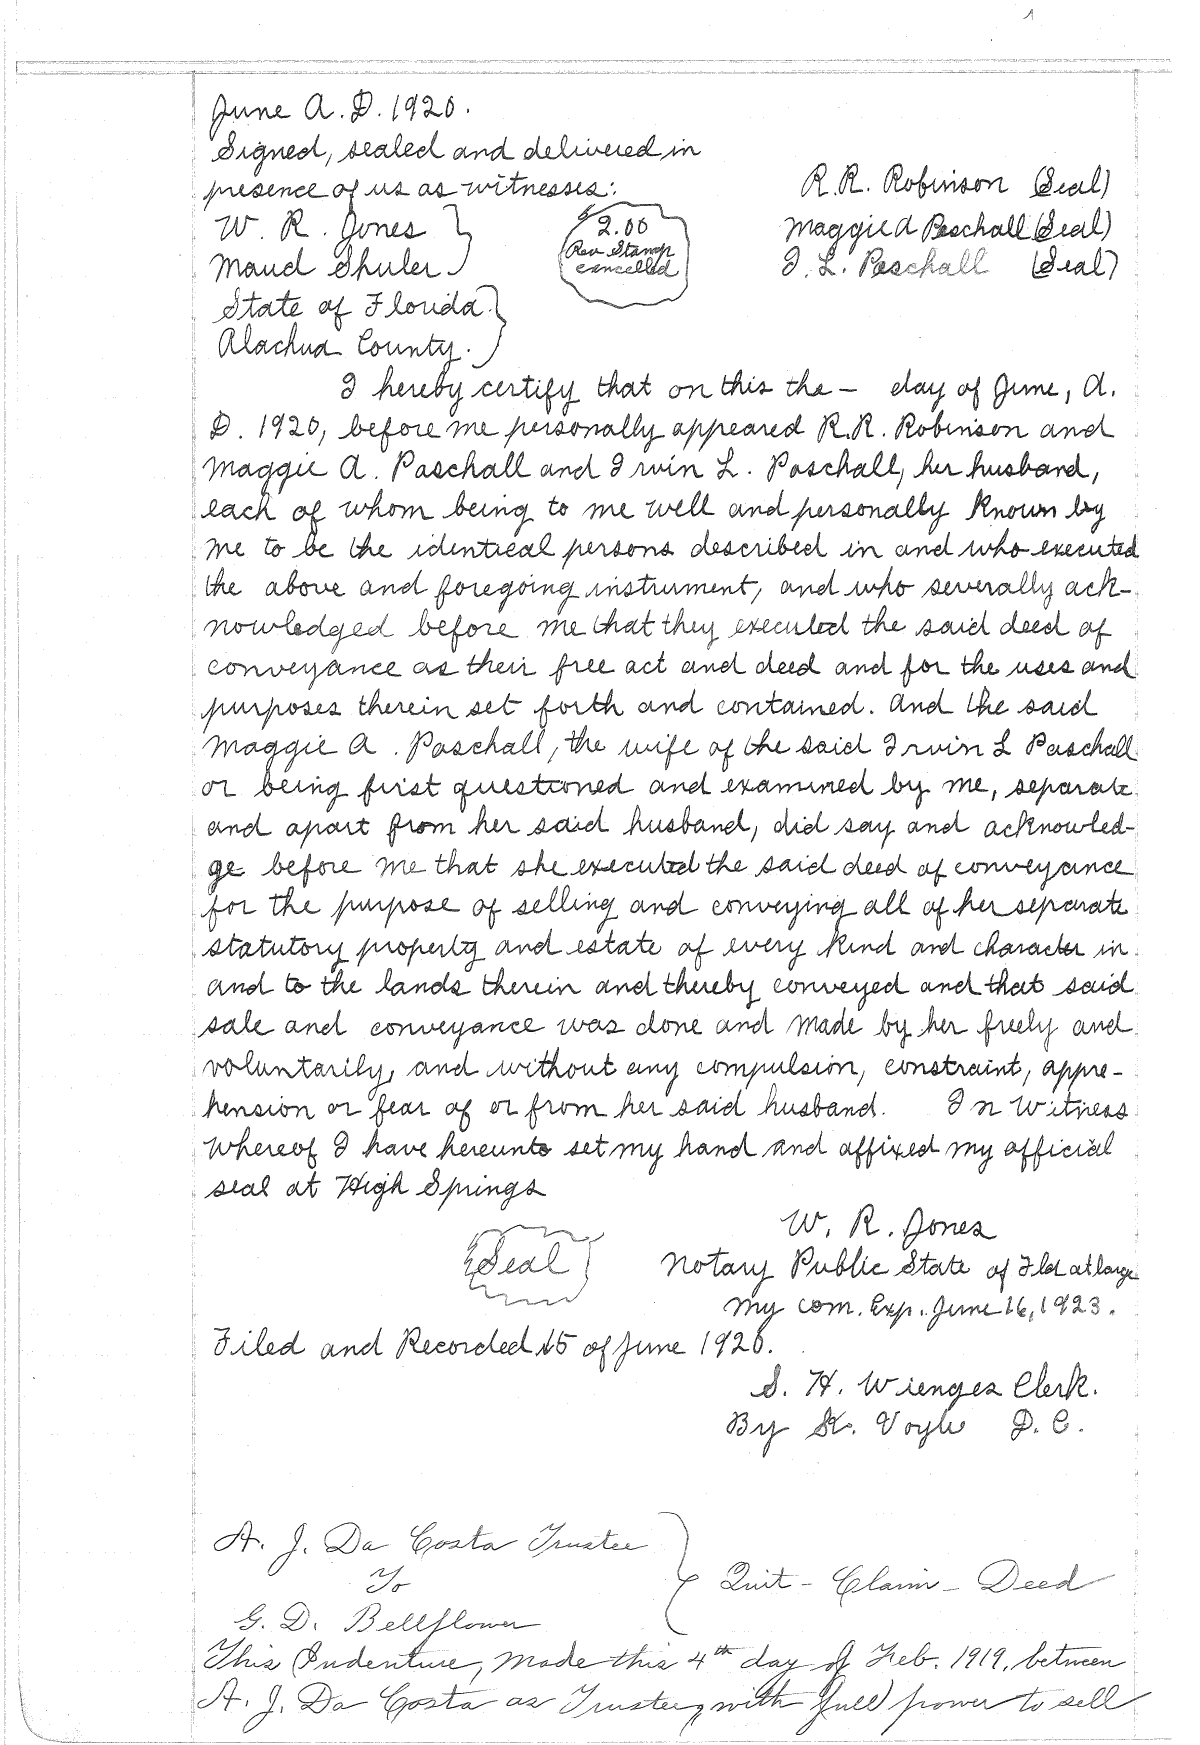 1
June A.D. 1920.
Signed, sealed and delivered in
presence of us as witnesses:
R.R. Robinson (Seal)
W. R. Jones
2.00
Rev Stamp
cancelled
Maggie A Paschall (Seal)
Maud Shuler
I. L. Paschall (Seal)
State of Florida
Alachua County.
I hereby certify that on this the – day of June, A.
D. 1920, before me personally appeared R.R. Robinson and
Maggie A. Paschall and Irvin L. Paschall, her husband,
each of whom being to me well and personally known by
me to be the identical persons described in and who executed
the above and foregoing instrument, and who severally ack-
nowledged before me that they executed the said deed of
conveyance as their free act and deed and for the uses and
purposes therein set forth and contained. And the said
Maggie A. Paschall, the wife of the said Irvin L Paschall
or being first questioned and examined by me, separate
and apart from her said husband, did say and acknowled-
ge before me that she executed the said deed of conveyance
for the purpose of selling and conveying all of her separate
statutory property and estate of every kind and character in
and to the lands therein and thereby conveyed and that said
sale and conveyance was done and made by her freely and
voluntarily, and without any compulsion, constraint, appre-
hension or fear of or from her said husband. In Witness
Whereof I have hereunto set my hand and affixed my official
seal at High Springs
W. R. Jones
Seal
Notary Public State of Fla at large
My com. Exp. June 16, 1923.
Filed and Recorded 15 of June 1920.
S. H. Wienges Clerk.
By St. Voyle D. C.
A. J. Da Costa Trustee
To
Quit - Claim - Deed
G. D. Bellflower
This Indenture, Made this 4th day of Feb. 1919, between
A. J. Da Costa as Trustee, with full power to sell